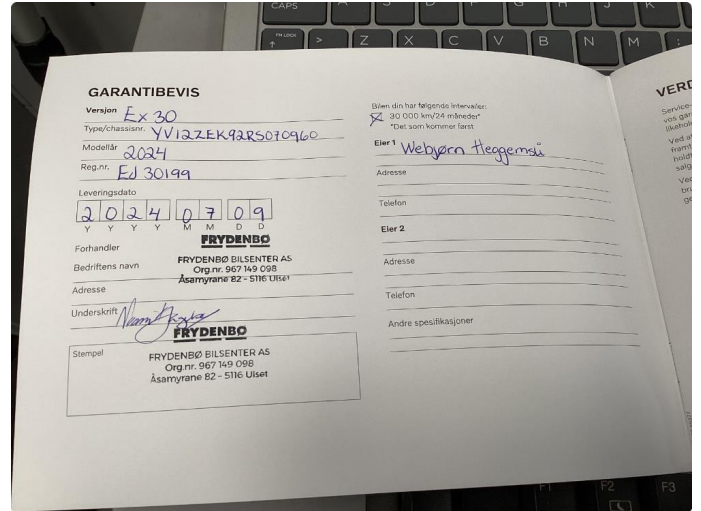 CAPS
A
S
D
F
G
H
J
K
FN LOCK
>
Z
X
C
V
B
N
M
GARANTIBEVIS
Versjon Ex 30
Type/chassisnr. YV12ZEK92RS070960
Modellår 2024
Reg.nr. EJ 30199
Leveringsdato
2 0 2 4 0 7 0 9
Y Y Y Y M M D D
Forhandler
FRYDENBØ
Bedriftens navn FRYDENBØ BILSENTER AS
Org.nr. 967 149 098
Adresse Åsamyrane 82 - 5116 Ulset
Underskrift
FRYDENBØ
Stempel FRYDENBØ BILSENTER AS
Org.nr. 967 149 098
Åsamyrane 82 - 5116 Ulset
Bilen din har følgende intervaller:
30 000 km/24 måneder*
*Det som kommer først
Eier 1 Webjørn Heggemsli
Adresse
Telefon
Eier 2
Adresse
Telefon
Andre spesifikasjoner
VERD
Service-
vos gar
Ved a
framt
holdt
salg
Ve
br
ge
F1
F2
F3